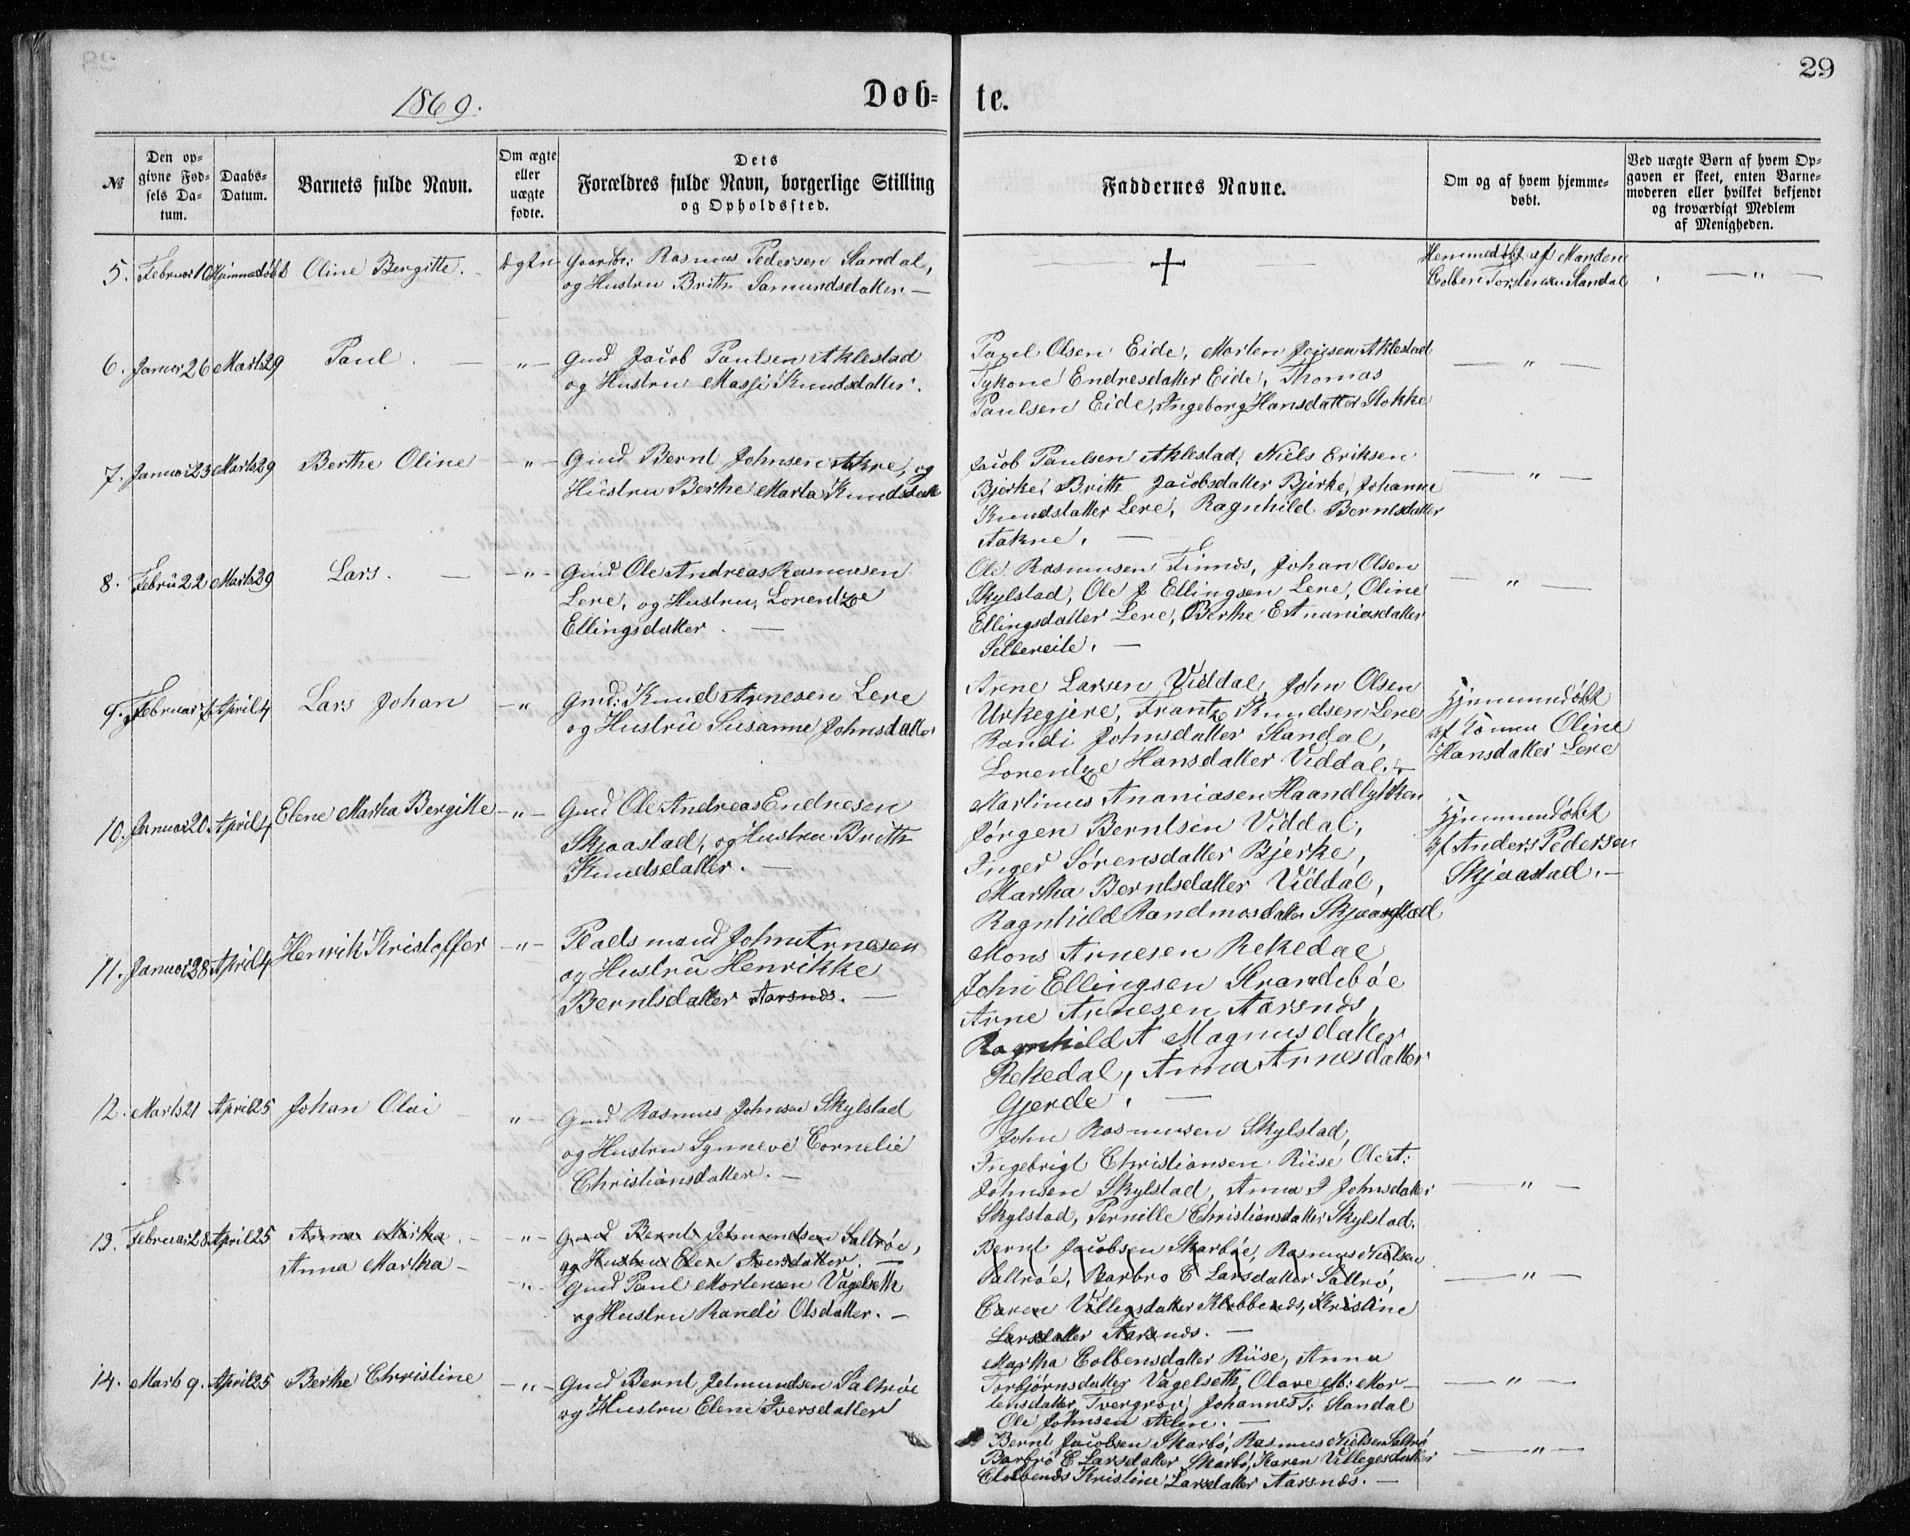 29
1869.
Døb-te.
№
Den op-
givne Fød-
sels Da-
tum.
Daabs-
Datum.
Barnets fulde Navn.
Om ægte
eller
uægte
fødte.
Dets
Forældres fulde Navn, borgerlige Stilling
og Opholdssted.
Faddernes Navne.
Om og af hvem hjemme-
døbt.
Ved uægte Børn af hvem Op-
gaven er skeet, enten Barne-
moderen eller hvilket bekjendt
og troværdigt Medlem
af Menigheden.
5. Februar 10 Hjemmedøbt Oline Bergitte. Ægten Gaardbr: Rasmus Pedersen Standal,
og Hustru Brith Samundsdatter —
+
Hemmedøbt af Manden
Colben Torstensen Standal
— " —
6. Januar 26 Marts 29 Paul. — " — Gmd Jacob Paulsen Aklestad
og Hustru Massi Knudsdatter.
Paul Olsen Eide, Morten Jensen Aklestad
Tykone Endresdatter Eide, Thomas
Paulsen Eide, Ingeborg Hansdatter Stokke
— " —
7. Januar 23 Marts 29 Berthe Oline " — Gmd Bernt Johnsen Akre, og
Hustru Berthe Marta Knudsdatt
Jacob Paulsen Aklestad, Niels Eriksen
Bjerke, Brith Jacobsdatter Bjerke, Johanne
Knudsdatter Lere, Ragnhild Berntsdatter
Aakre. —
— " —
8. Febru 22 Marts 29 Lars. — — " — Gmd Ole Andreas Rasmusen
Lere, og Hustru, Lorentze
Ellingsdatter. —
Ole Rasmusen Finnes, Johan Olsen
Skylstad, Ole J Ellingsen Lere, Oline
Ellingsdatter Lere, Berthe E Ananiasdatter
Sellereite. —
— " —
9. Februar 6 April 4 Lars Johan — " Gmd: Knud Arnesen Lere
og Hustru Susanne Johnsdatter
Arne Larsen Viddal, John Olsen
Urkegjere, Frantz Knudsen Lere
Randi Johnsdatter Standal,
Lorentze Hansdatter Viddal. —
Hjemmendøbt
af Konen Oline
Hansdatter Lere
10. Januar 20 April 4 Elene Martha Bergitte — " — Gmd Ole Andreas Endresen
Skjaastad, og Hustru Brith
Knudsdatter. —
Martinus Ananiasen Haandlykken
Jørgen Berntsen Viddal,
Inger Sørensdatter Bjerke,
Martha Berntsdatter Viddal,
Ragnhild Randmosdatter Skjaastad
Hjemmendøbt
af Anders Pedersen
Skjaastad. —
11. Januar 28 April 4 Henrik Kristoffer — " — Pladsmand John Arnesen
og Hustru Henrikke
Berntsdatter Aarsnes. —
Mons Arnesen Rekedal
John Ellingsen Strandebøe
Arne Arnesen Aarsnes,
Ragnhild A Magnusdatter
Rekedal, Anna Arnesdatter
Gjerde. —
12. Marts 21 April 25 Johan Olai — " — Gmd Rasmus Johnsen Skylstad
og Hustru Synneve Cornelie
Christiansdatter. —
John Rasmusen Skylstad,
Ingebrigt Christiansen Riise, Ole A:
Johnsen Skylstad, Anna J Johnsdatter
Skylstad, Pernille Christiansdatter Skylstad.
— " —
13. Februar 28 April 25 Anna Martha. — " — Gmd Bernt Jetmundsen Saltrøe,
og Hustru Elen Iversdatter. —
Anna Martha — " — Gmd Paul Mortensen Vagelseth
og Hustru Randi Olsdatter. —
Bernt Jacobsen Skarbøe, Rasmus Nielsen
Saltrøe, Barbro E Larsdatter Saltrø,
Caren Villegsdatter Klubbenes, Kristine
Larsdatter Aarsnes. —
— " —
Martha Colbensdatter Riise, Anna
Torbjørnsdatter Vagelseth, Olave M: Mor-
tensdatter, Tvergrov, Johannes T: Standal
Ole Johnsen Aklen. —
— " —
14. Marts 9. April 25 Berthe Christine — " — Gmd Bernt Jetmundsen Saltrøe
og Hustru Elene Iversdatter
Bernt Jacobsen Skarbø, Rasmus Nielsen Saltrø
Barbrø E Larsdatter Skarbø, Karen Villegesdatter
Clubenes Kristine Larsdatter Aarsnes. —
— " —